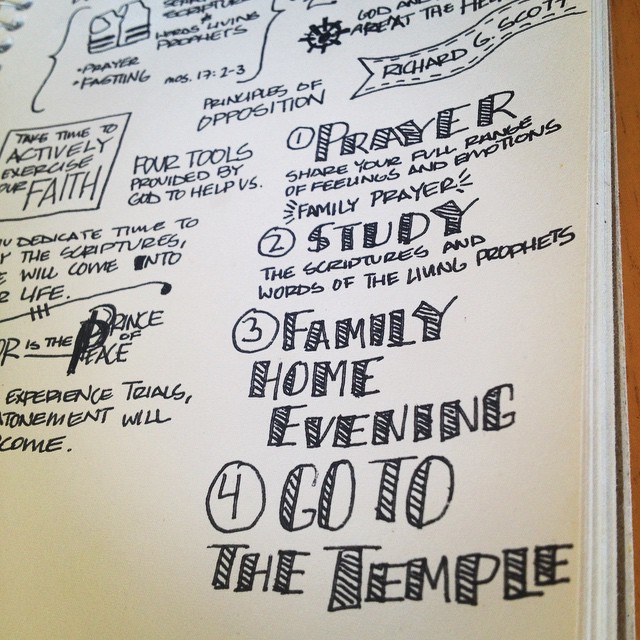 SCRIPTURE
&
WORDS/LIVING
PROPHETS
• PRAYER
• FASTING
MOS. 17:2-3
GOD AND
ARE AT THE HE
RICHARD G. SCOTT
PRINCIPLES OF
OPPOSITION
TAKE TIME TO
ACTIVELY
EXERCISE
OUR
FAITH
FOUR TOOLS
PROVIDED BY
GOD TO HELP US.
① PRAYER
SHARE YOUR FULL RANGE
OF FEELINGS AND EMOTIONS
FAMILY PRAYER
② STUDY
THE SCRIPTURES AND
WORDS OF THE LIVING PROPHETS
③ FAMILY
HOME
EVENING
④ GO TO
THE TEMPLE
U DEDICATE TIME TO
Y THE SCRIPTURES,
E WILL COME INTO
R LIFE.
OR IS THE PRINCE
OF
PEACE
EXPERIENCE TRIALS,
ATONEMENT WILL
COME.